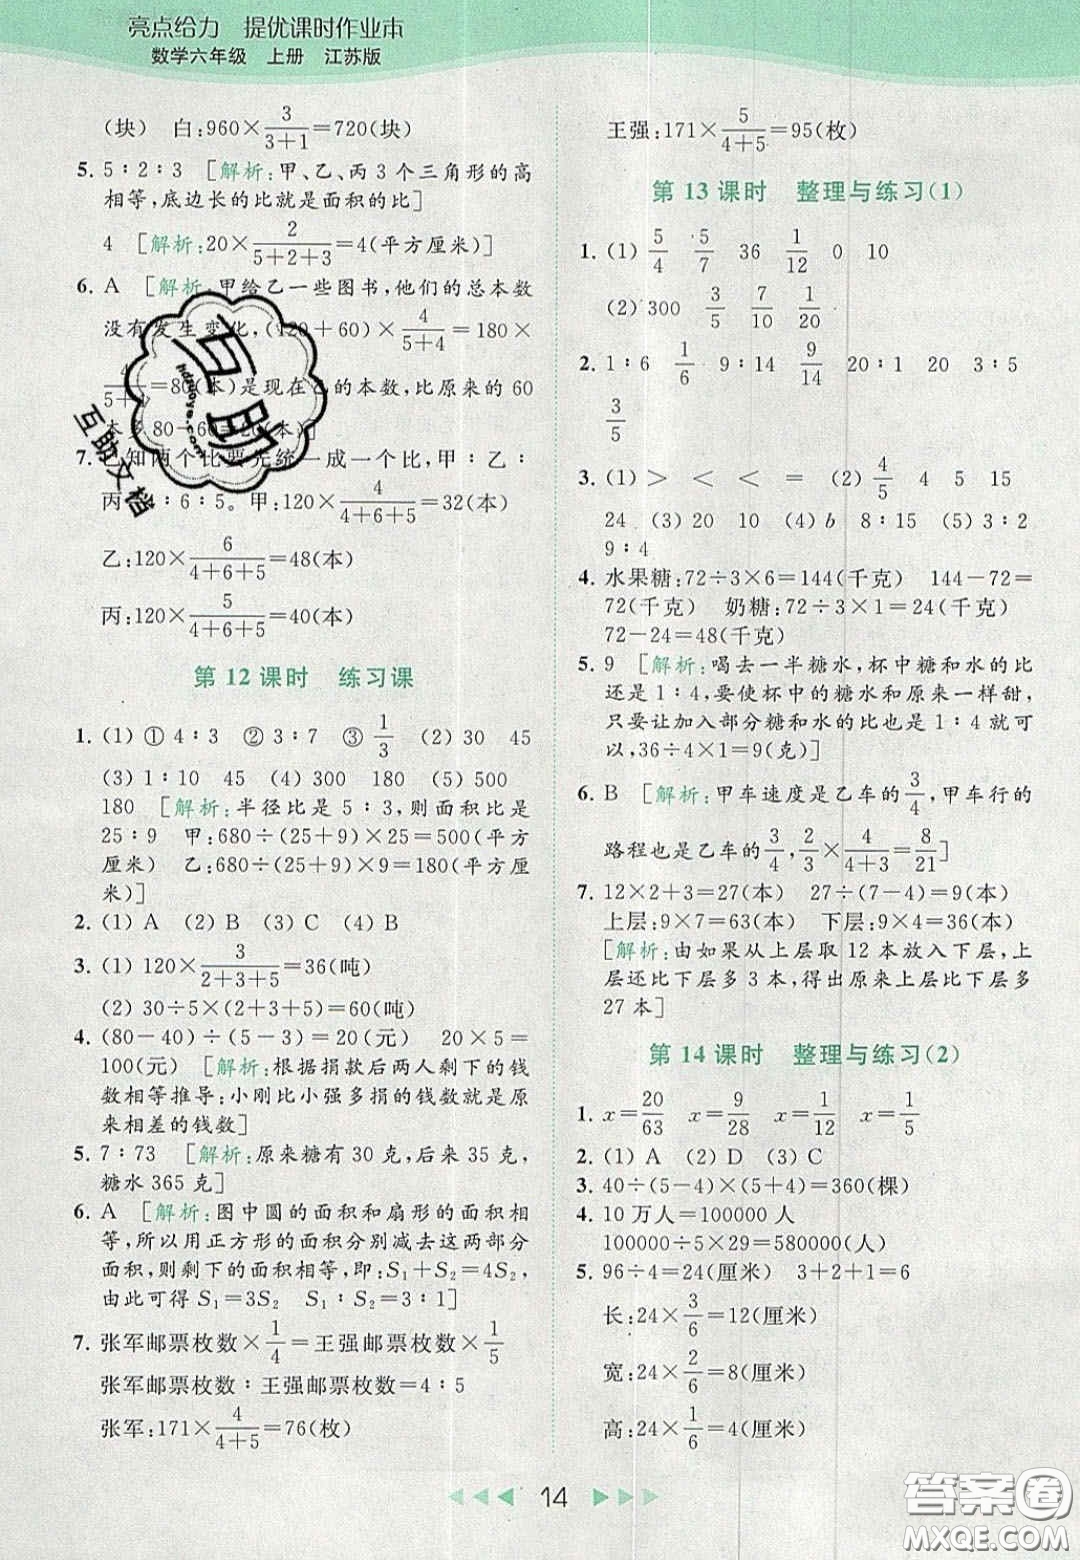 亮点给力 提优课时作业本
数学六年级 上册 江苏版
(块) 白:960×3/3+1=720(块)
5. 5∶2∶3 [解析:甲、乙、丙3个三角形的高
相等,底边长的比就是面积的比]
4 [解析:20×2/5+2+3=4(平方厘米)]
6. A [解析:甲给乙一些图书,他们的总本数
没有发生变化,(120+60)×4/5+4=180×
4/5+4=80(本)是现在乙的本数,比原来的60
本多80-60=20(本)]
7. 知两个比要先统一成一个比,甲∶乙∶
丙 ∶6∶5。甲:120×4/4+6+5=32(本)
乙:120×6/4+6+5=48(本)
丙:120×5/4+6+5=40(本)
第12课时 练习课
1. (1) ① 4∶3 ② 3∶7 ③ 1/3 (2) 30 45
(3) 1∶10 45 (4) 300 180 (5) 500
180 [解析:半径比是5∶3,则面积比是
25∶9 甲:680÷(25+9)×25=500(平方
厘米) 乙:680÷(25+9)×9=180(平方厘
米)]
2. (1) A (2) B (3) C (4) B
3. (1) 120×3/2+3+5=36(吨)
(2) 30÷5×(2+3+5)=60(吨)
4. (80-40)÷(5-3)=20(元) 20×5=
100(元) [解析:根据捐款后两人剩下的钱
数相等推导:小刚比小强多捐的钱数就是原
来相差的钱数]
5. 7∶73 [解析:原来糖有30克,后来35克,
糖水365克]
6. A [解析:图中圆的面积和扇形的面积相
等,所以用正方形的面积分别减去这两部分
面积,则剩下的面积相等,即:S₁+S₂=4S₂,
由此可得S₁=3S₂ S₁∶S₂=3∶1]
7. 张军邮票枚数×1/4=王强邮票枚数×1/5
张军邮票枚数∶王强邮票枚数=4∶5
张军:171×4/4+5=76(枚)
王强:171×5/4+5=95(枚)
第13课时 整理与练习(1)
1. (1) 5/4 5/7 36 1/12 0 10
(2) 300 3/5 7/10 1/20
2. 1∶6 1/6 9∶14 9/14 20∶1 20 3∶5
3/5
3. (1) > < < = (2) 4/5 4 5 15
24 (3) 20 10 (4) b 8∶15 (5) 3∶2
9∶4
4. 水果糖:72÷3×6=144(千克) 144-72=
72(千克) 奶糖:72÷3×1=24(千克)
72-24=48(千克)
5. 9 [解析:喝去一半糖水,杯中糖和水的比
还是1∶4,要使杯中的糖水和原来一样甜,
只要让加入部分糖和水的比也是1∶4就可
以,36÷4×1=9(克)]
6. B [解析:甲车速度是乙车的3/4,甲车行的
路程也是乙车的3/4,2/3×4/4+3=8/21]
7. 12×2+3=27(本) 27÷(7-4)=9(本)
上层:9×7=63(本) 下层:9×4=36(本)
[解析:由如果从上层取12本放入下层,上
层还比下层多3本,得出原来上层比下层多
27本]
第14课时 整理与练习(2)
1. x=20/63 x=9/28 x=1/12 x=1/5
2. (1) A (2) D (3) C
3. 40÷(5-4)×(5+4)=360(棵)
4. 10万人=100000人
100000÷5×29=580000(人)
5. 96÷4=24(厘米) 3+2+1=6
长:24×3/6=12(厘米)
宽:24×2/6=8(厘米)
高:24×1/6=4(厘米)
14
互助
hdzuoye.com
互助文档
答案圈
MXQE.COM